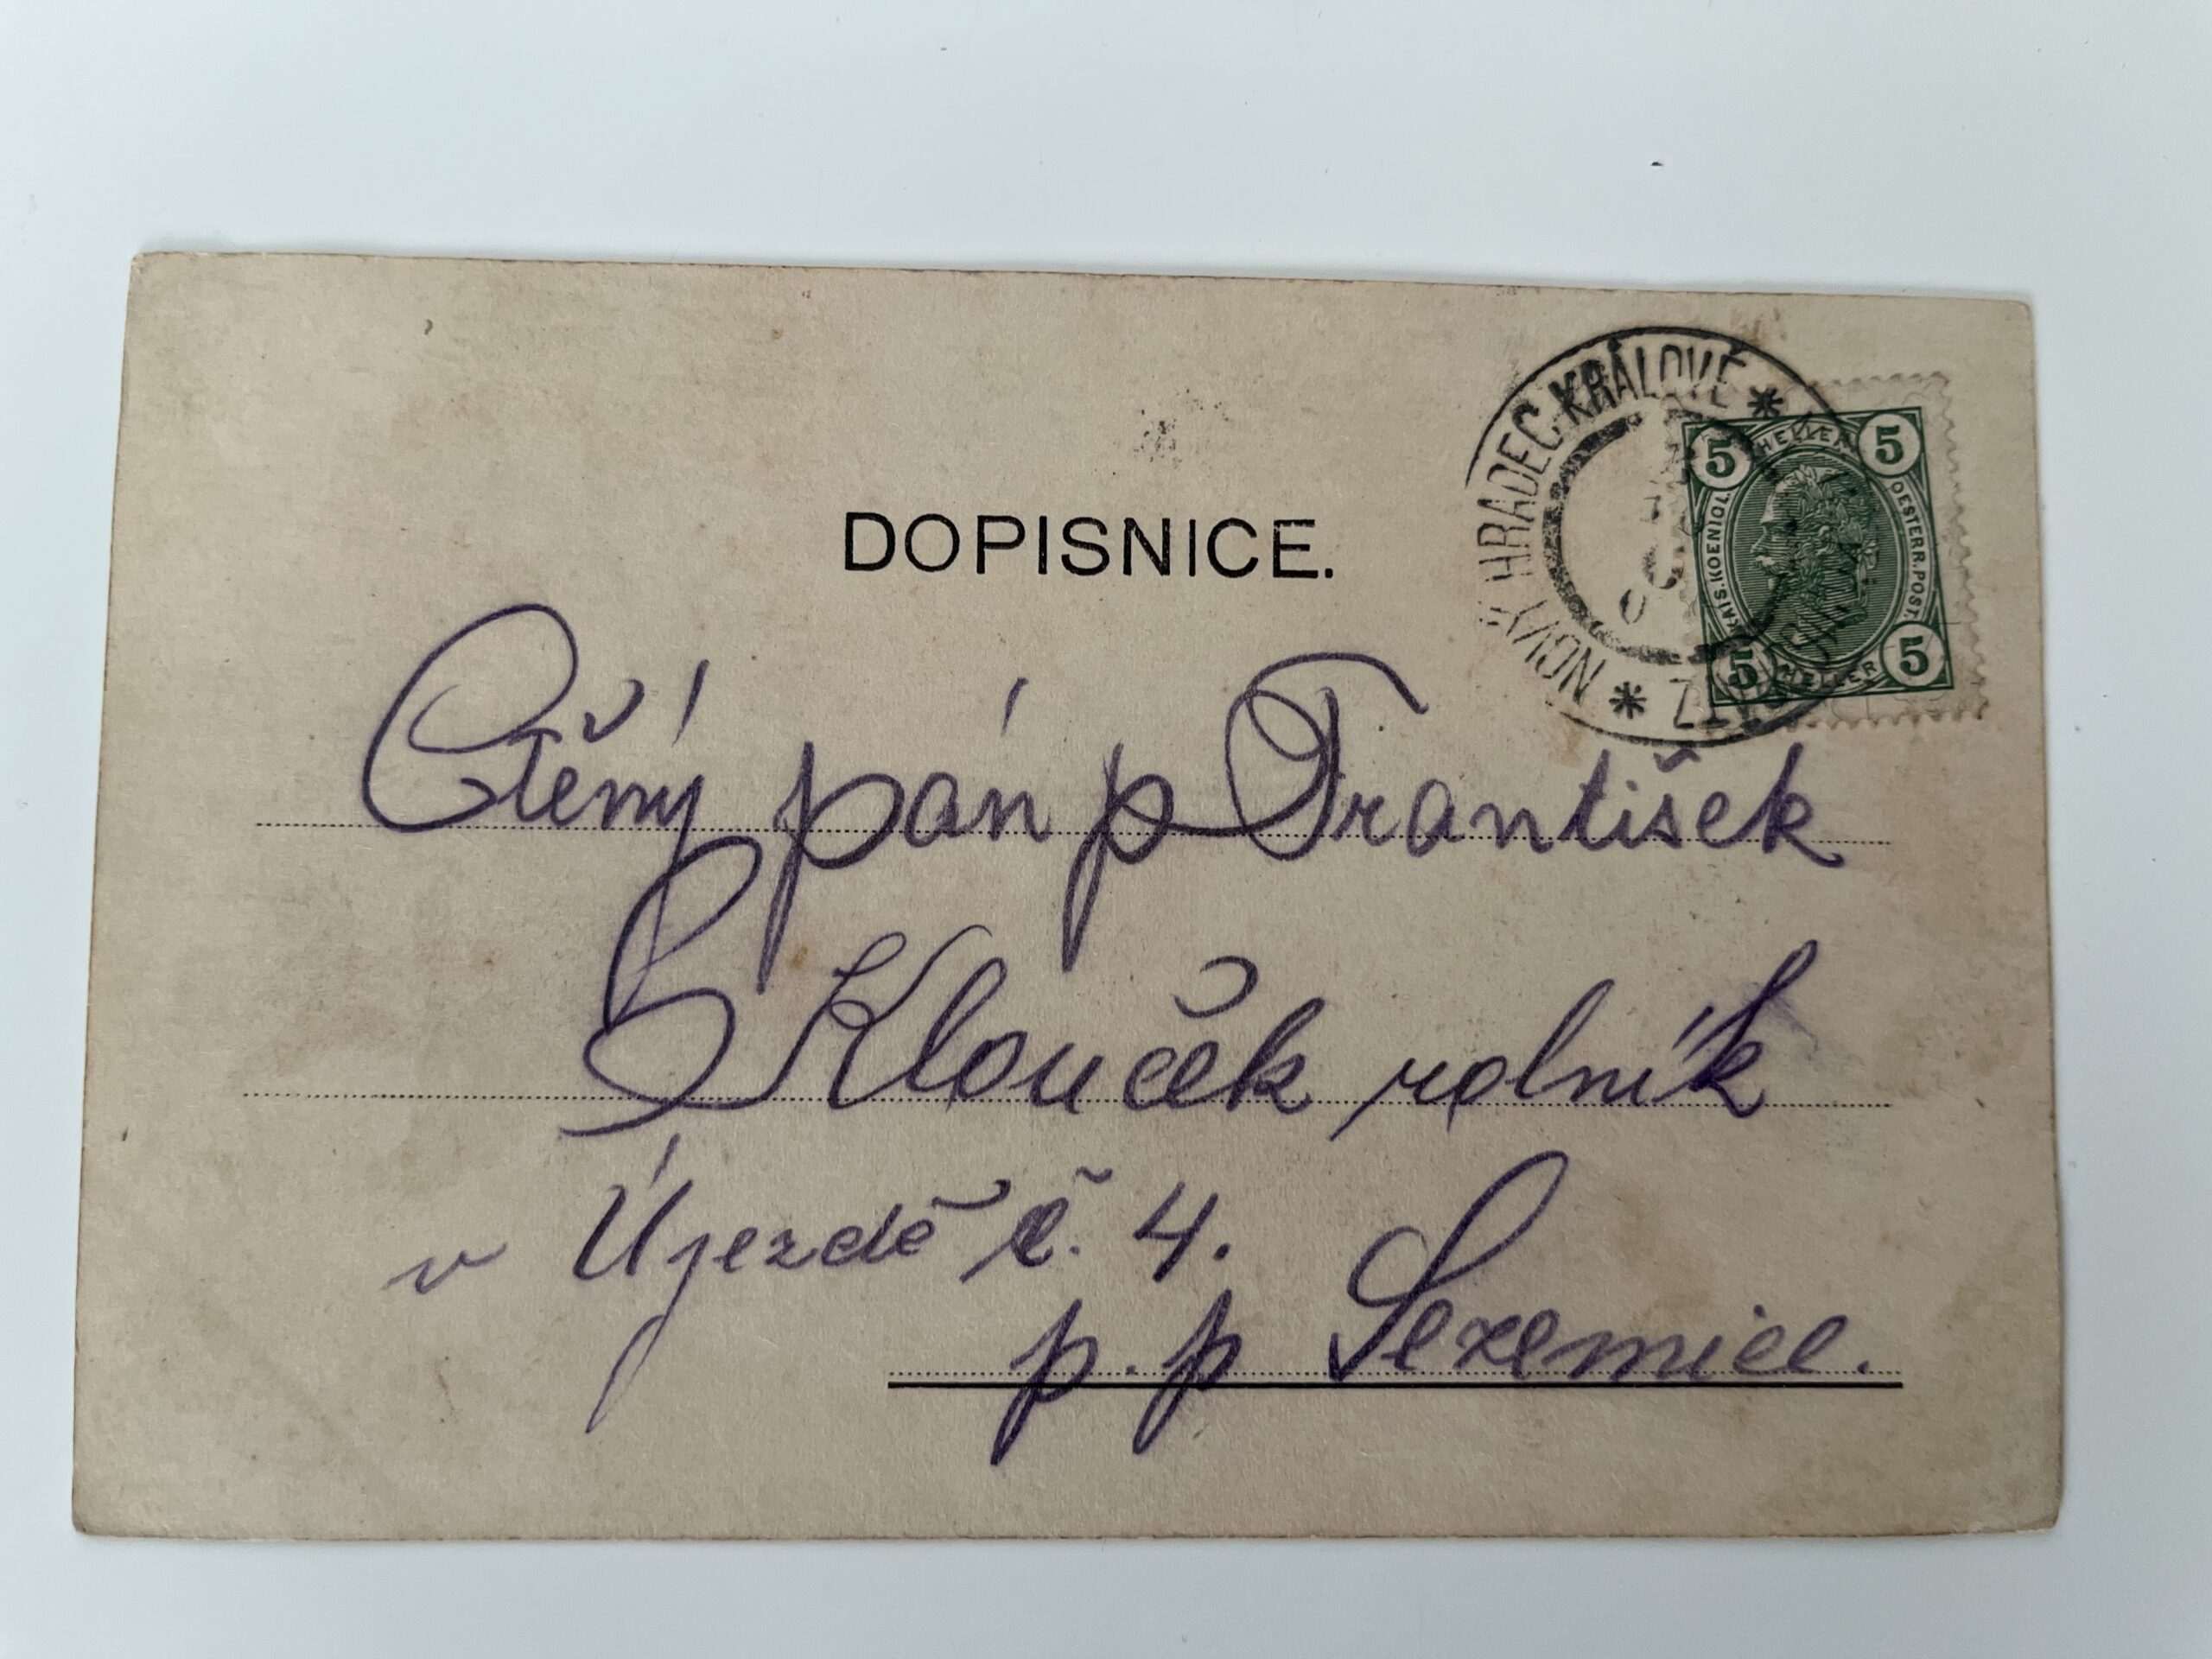 NOVÝ HRADEC KRÁLOVÉ
5 HELLER 5
KAIS. KOENIGL. OESTERR. POST.
5 HELLER 5
DOPISNICE.
Ctěný pán p František
Klouček rolník
v Újezdě č. 4.
p. p Sezemice.